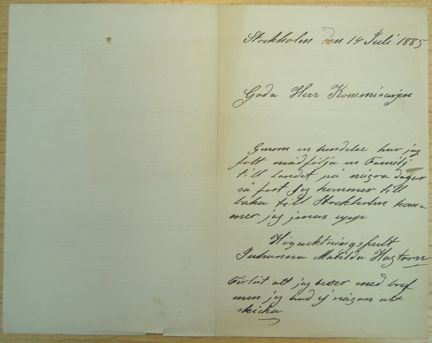 Stockholm den 14 Juli 1885
Goda Herr Kommisarjen
Genom en hendelse har jag
fott måd följa en Familj
till landet på några dagar
så fort Jag kommer till
baka till Stockholm kom=
mer jag jenas upp
Högacktningsfult
Juhanna Matilda
Forlåt att jag med bref
men jag had ej någon att
skicka